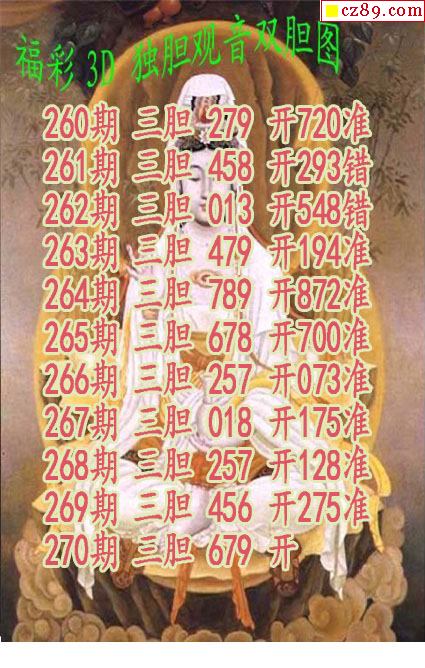 cz89.com
福彩 3D 独胆观音双胆图
260期 三胆 279 开720准
261期 三胆 458 开293错
262期 三胆 013 开548错
263期 三胆 479 开194准
264期 三胆 789 开872准
265期 三胆 678 开700准
266期 三胆 257 开073准
267期 三胆 018 开175准
268期 三胆 257 开128准
269期 三胆 456 开275准
270期 三胆 679 开